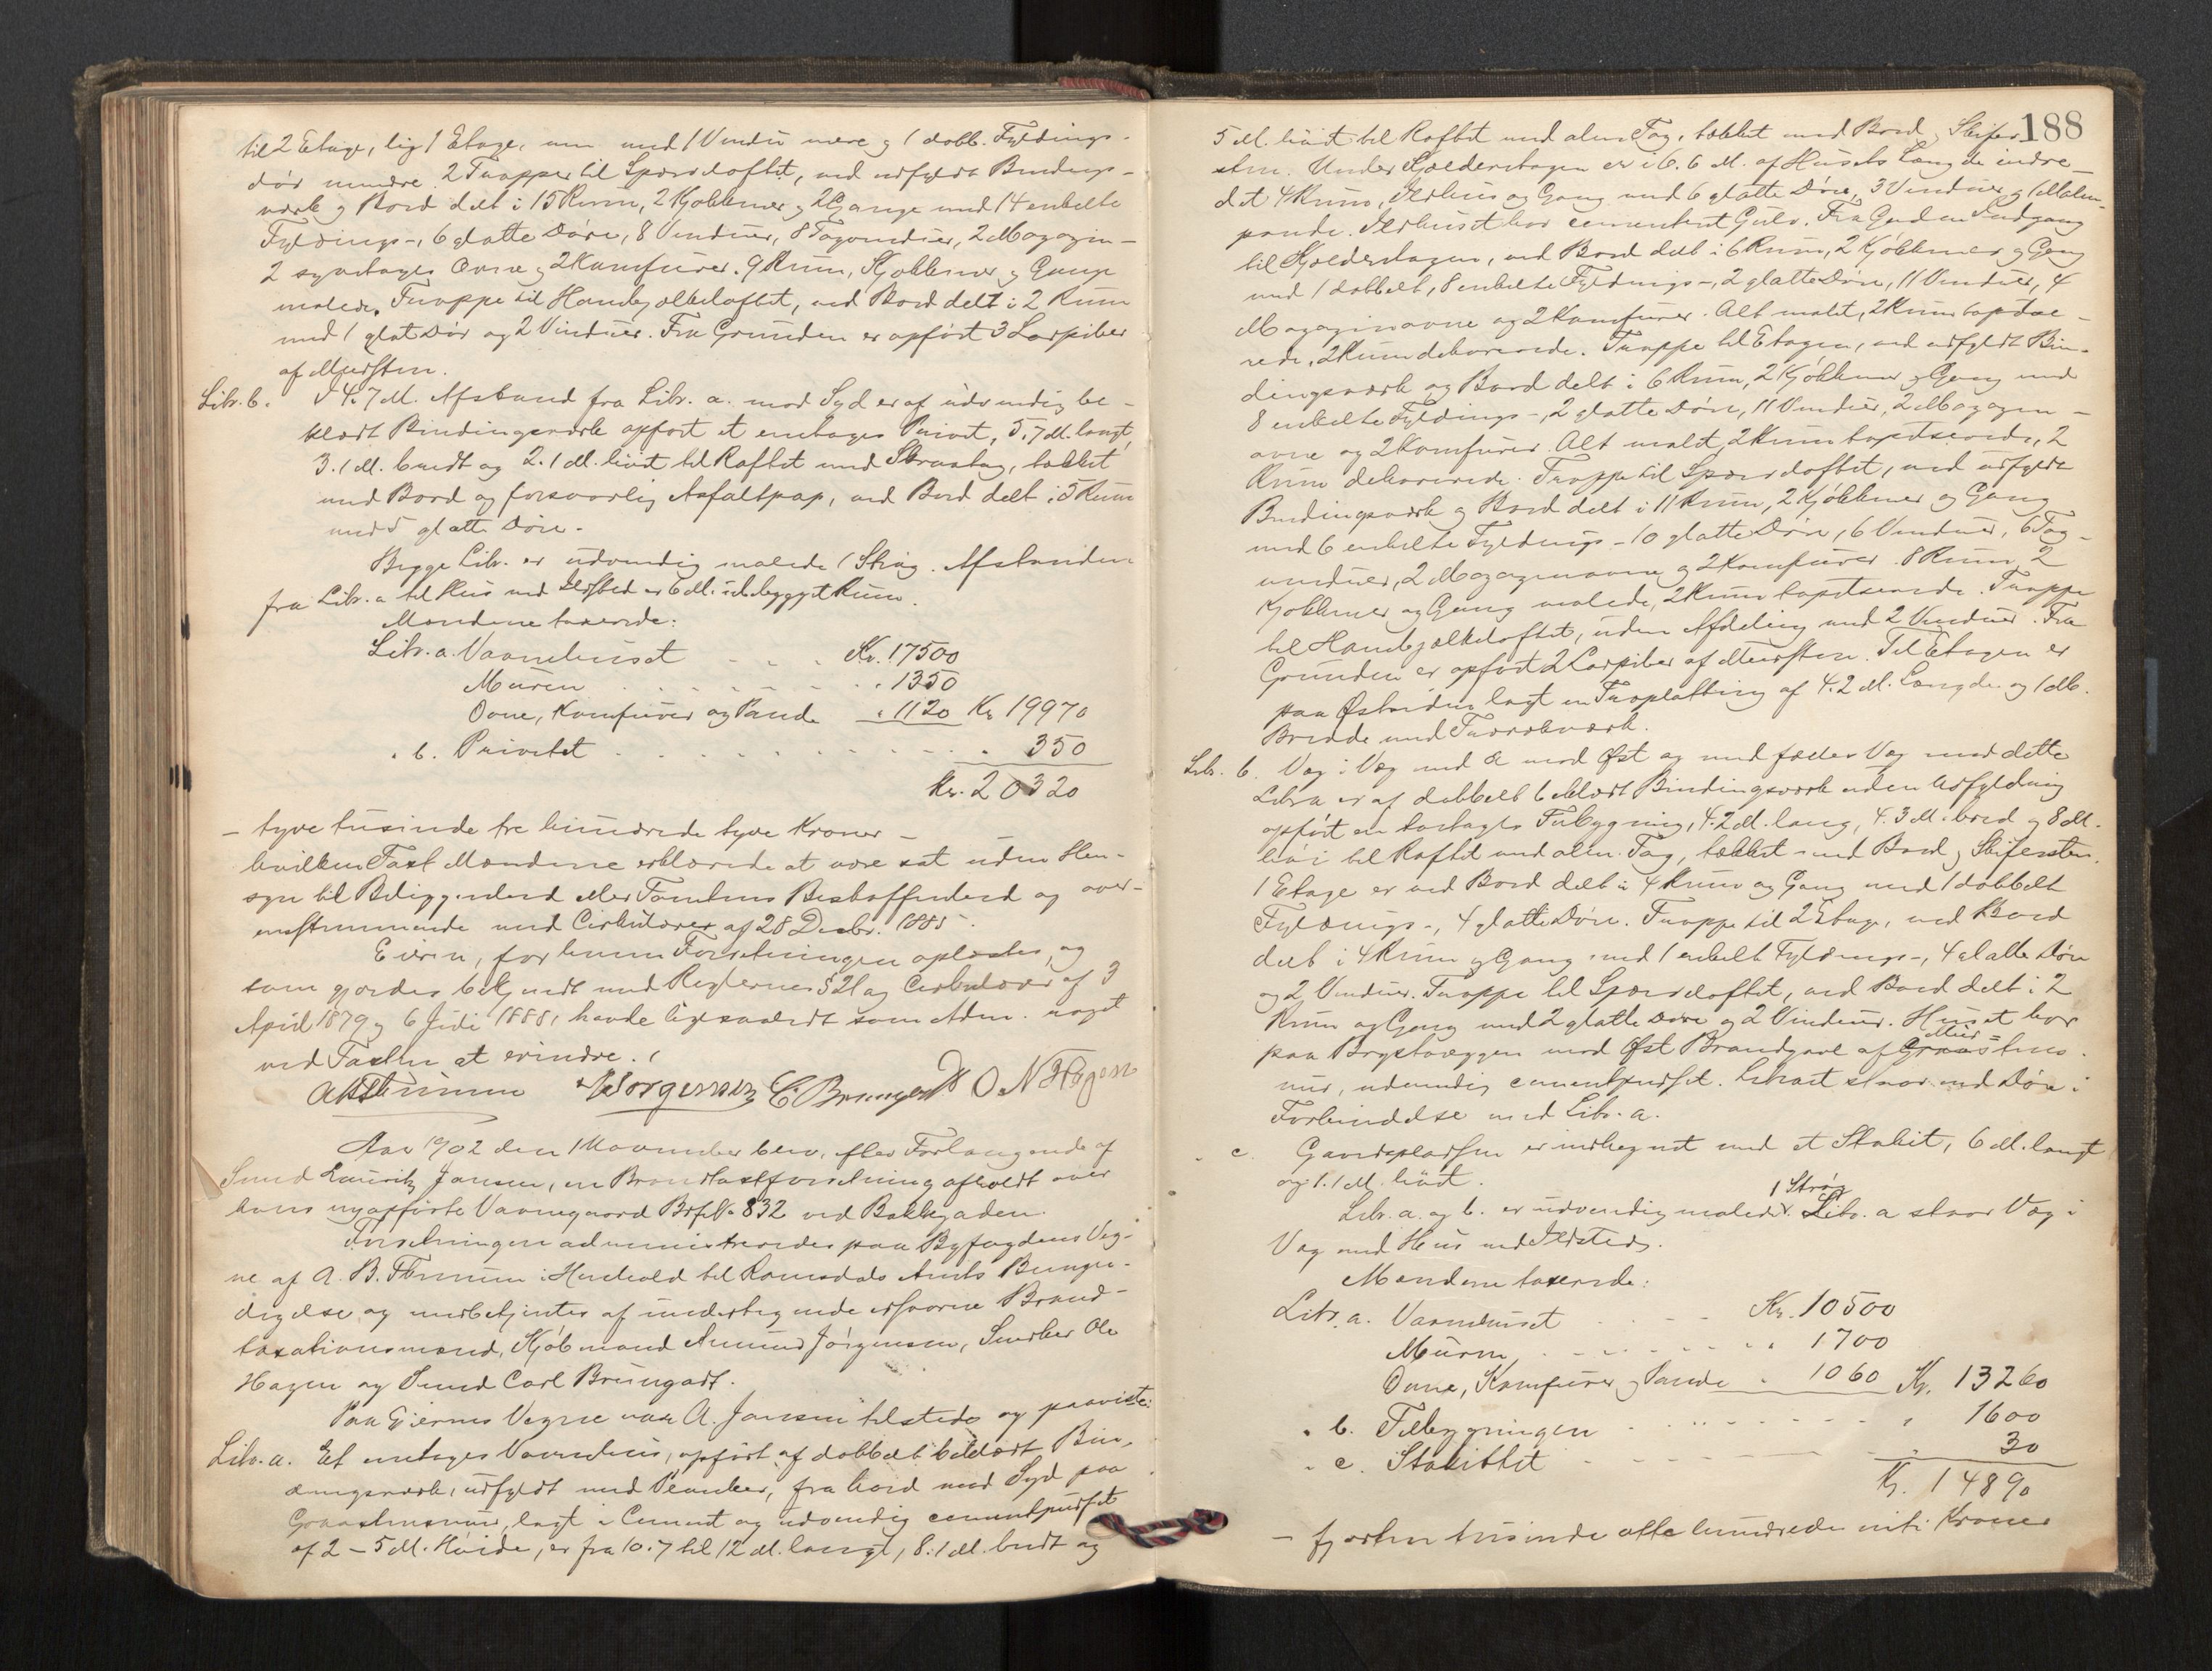 til 2 Etage, lig 1 Etage, men med 1 Vindu mere og 1 dobb. Fyldings-
dør mindre. 2 Trapper til Spærreloftet, ved udfyldt Bindings-
værk og Bord delt i 15 Rum, 2 Kjøkkener og 2 Gange med 14 enkelte
Fyldings-, 6 glatte Døre, 8 Vinduer, 8 Tagvinduer, 2 Magazin-
2 syvetages Ovne og 2 Komfurer. 9 Rum, Kjøkkener og Gange
malede. Trappe til Hanebjælkeloftet, ved Bord delt i 2 Rum
med 1 glat Dør og 2 Vinduer. Fra Grunden er opført 3 Lorpiber
af Mursten.
Litr. b. I 4.7 M. Afstand fra Litr. a. mod Syd er af udvendig be-
klædt Bindingsværk opført et enetages Privet, 5.7 M. langt,
3.1 M. bredt og 2.1 M. høit til Raftet med Skraatag, tækket
med Bord og forsvarlig Asfaltpap, ved Bord delt i 5 Rum
med 5 glatte Døre.
Begge Litr. er udvendig malede 1 Strøg. Afstanden
fra Litr. a til Hus med Ildsted er 6 M. ubebygget Rum.
Mændene taxerede:
Litr. a. Vaanehuset Kr. 17500
Muren " 1350
Ovne, Komfurer og Pande " 1120 Kr 19970
" b. Privetet " 350
Kr. 20320
— tyve tusinde tre hundrede tyve Kroner —
hvilken Taxt Mændene erklærede at være sat uden Hen-
syn til Beliggenhed eller Tomtens Beskaffenhed og over-
ensstemmende med Cirkulærer af 28 Decbr. 1885.
Eieren, for hvem Forretningen oplæstes, og
som gjordes bekjendt med Reglernes § 21 og Cirkulærer af 3
April 1879 og 6 Juli 1888, havde ligesaalidt som Adm. noget
ved Taxten at erindre.
AJørgensen C. Brungodt O N Hagen
Aar 1902 den 1 November blev, efter Forlangende af
Smed Lauritz Jansen, en Brandtaxtforretning afholdt over
hans nyopførte Vaanegaard Brfel. 832 ved Bakkegaden.
Forretningen administreredes paa Byfogdens Veg-
ne af A. B. Thrumm i Henhold til Romsdals Amts Bemyn-
digelse og medbetjentes af undertegnede edsvorne Brand-
taxationsmænd, Kjøbmand Amund Jörgensen, Snedker Ole
Hagen og Smed Carl Brungodt.
Paa Eierens Vegne var A. Jansen tilstede og paaviste:
Litr. a. Et enetages Vaanehus, opført af dobbelt beklædt Bin-
dingsværk, udfyldt med Planker, fra hvid mod Syd paa
Graastensmur, lagt i Cement og udvendig cementpudset
af 2 - 5 M. Høide, er fra 10.7 til 12 M. langt, 8.1 M. bredt og
188
5 M. høit til Raftet med alm. Tag, tækket med Bord og Skifer-
sten. Under Kjælderetagen er i 6.6 M. af Husets Længde indre-
det 4 Rum, Ildhus og Gang med 6 glatte Døre, 3 Vinduer og 1
pande. Ildhuset har cementeret Gulv. Fra Gaden Indgang
til Kjælderetagen, ved Bord delt i 6 Rum, 2 Kjøkkener og Gang
med 1 dobbelt, 8 enkelte Fyldings-, 2 glatte Døre, 11 Vinduer, 4
Magazinovne og 2 Komfurer. Alt malet, 2 Rum tapetse-
rede, 2 Rum dekorerede. Trappe til Etagen, ved udfyldt Bin-
dingsværk og Bord delt i 6 Rum, 2 Kjøkkener og Gang med
8 enkelte Fyldings-, 2 glatte Døre, 11 Vinduer, 2 Magazin-
ovne og 2 Komfurer. Alt malet, 2 Rum tapetserede, 2
Rum dekorerede. Trappe til Spærreloftet, ved udfyldt
Bindingsværk og Bord delt i 11 Rum, 2 Kjøkkener og Gang
med 6 enkelte Fyldings- 10 glatte Døre, 6 Vinduer, 6 Tag-
vinduer, 2 Magazinovne og 2 Komfurer. 8 Rum, 2
Kjøkkener og Gang malede, 2 Rum tapetserede. Trappe
til Hanebjælkeloftet, uden Afdeling med 2 Vinduer. Fra
Grunden er opført 2 Lorpiber af Mursten. Til Etagen er
paa Østsiden lagt en Traplatting af 4.2 M. Længde og 1 M.
Bredde med Trærækværk.
Litr. b. Væg i Væg med a mod Øst og med fælles Væg med dette
Litra er af dobbelt beklædt Bindingsværk uden Udfyldning
opført en toetages Tilbygning, 4.2 M. lang, 4.3 M. bred og 8 M.
høi til Raftet med alm. Tag, tækket med Bord og Skifersten.
1 Etage er ved Bord delt i 4 Rum og Gang med 1 dobbelt
Fyldings-, 4 glatte Døre. Trappe til 2 Etage, ved Bord
delt i 4 Rum og Gang med 1 enkelt Fyldings-, 4 glatte Døre
og 2 Vinduer. Trappe til Spærreloftet, ved Bord delt i 2
Rum og Gang med 2 glatte Døre og 2 Vinduer. Huset har
paa Brystvæggen mod Øst Brandgavl af Graastens-
mur, udvendig cementpudset. Litraet staar ved Døre i
Forbindelse med Litr. a.
" c. Gaardspladsen er indhegnet med et Stakit, 6 M. langt
og 1.1 M. høit.
Litr. a. og b. er udvendig malede 1 Strøg. Litr. a staar Væg i
Væg med Hus med Ildsted.
Mændene taxerede:
Litr. a. Vaanehuset Kr. 10500
Muren " 1700
Ovne, Komfurer og Pande " 1060 Kr. 13260
" b. Tilbygningen " 1600
" c. Stakittet " 30
Kr. 14890
— fjorten tusinde otte hundrede niti Kroner